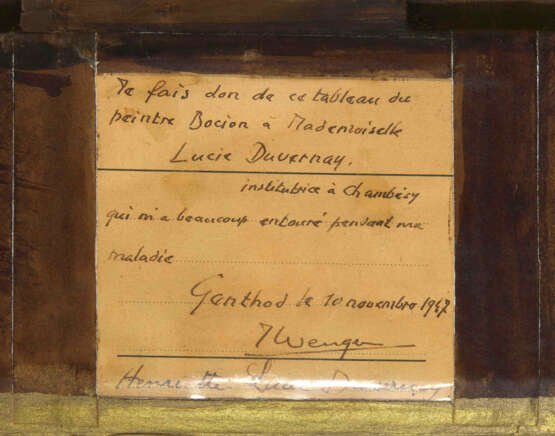 Je fais don de ce tableau du
peintre Bocion à Mademoiselle
Lucie Duvernay.
institutrice à Chambésy
qui m'a beaucoup entouré pendant ma
maladie
Genthod le 10 novembre 1947
JWenger
Henriette Lucie Duvernay